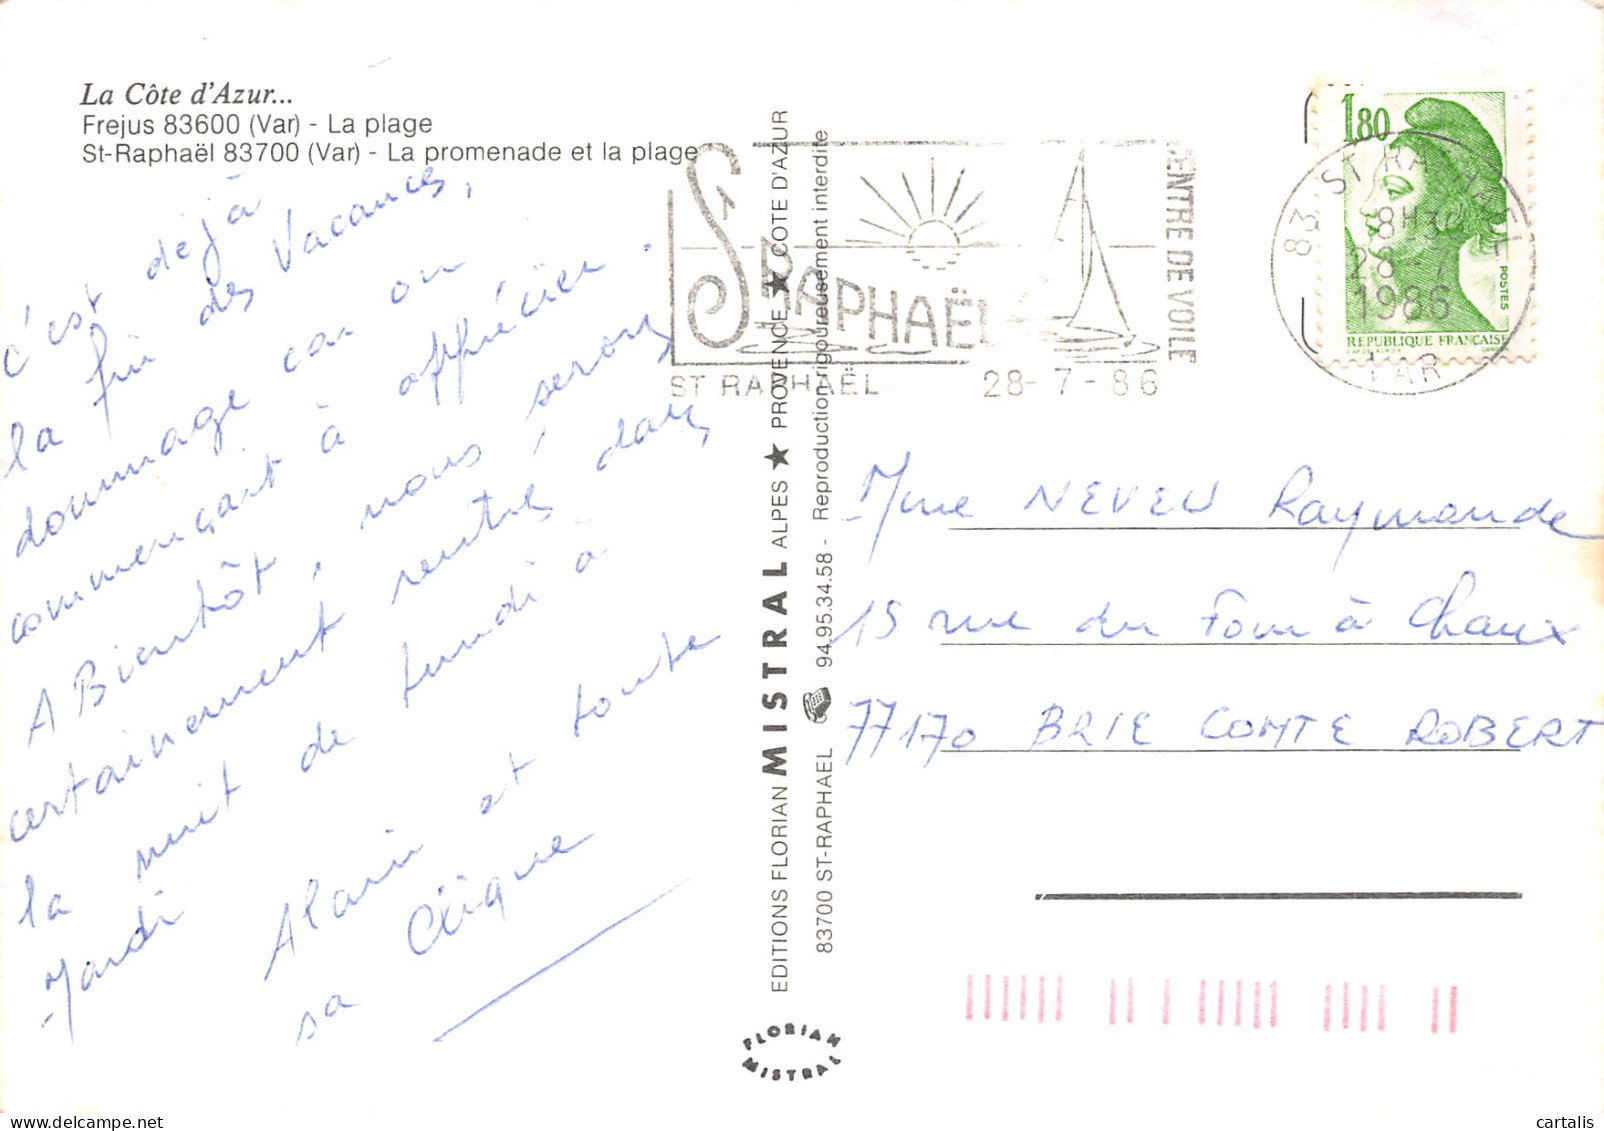 La Côte d'Azur...
Frejus 83600 (Var) - La plage
St-Raphaël 83700 (Var) - La promenade et la plage
c'est déjà
la fin des Vacances,
dommage car on
commençait à apprécier.
A Bientôt, nous serons
certainement rentrés dans
la nuit de lundi à
Mardi
Alain et toute
sa Clique
EDITIONS FLORIAN MISTRAL ALPES ★ PROVENCE ★ COTE D'AZUR
83700 ST-RAPHAEL 94.95.34.58 - Reproduction rigoureusement interdite
FLORIAN
MISTRAL
ST RAPHAËL
ENTRE DE VOILE
ST RAPHAËL 28-7-86
1,80
POSTES
REPUBLIQUE FRANÇAISE
83 ST RAPHAEL
8H30
28-7
1986
VAR
Mme NEVEU Raymonde
15 rue du Four à Chaux
77170 BRIE COMTE ROBERT
cartalis
www.delcampe.net